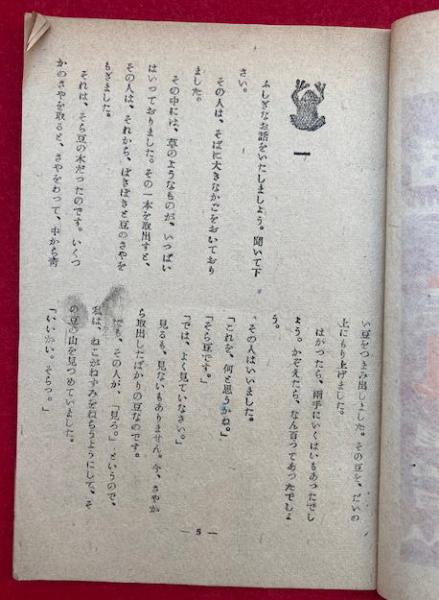 一
ふしぎなお話をいたしましょう。聞いて下
さい。
その人は、そばに大きなかごをおいており
ました。
その中には、草のようなものが、いっぱい
はいっておりました。その一本を取出すと、
その人は、それから、ぽきぽきと豆のさやを
もぎました。
それは、そら豆の木だったのです。いくつ
かのさやを取ると、さやをわって、中から靑
い豆をつまみ出しました。その豆を、だいの
上にもり上げました。
はかったら、兩手にいくはいもあったでし
ょう。かぞえたら、なん百ってあったでしょ
う。
その人はいいました。
「これを、何と思うかね。」
「そら豆です。」
「では、よく見ていなさい。」
見るも、見ないもありません。今、さやか
ら取出したばかりの豆なのです。
でも、その人が、「見ろ。」というので、
私は、ねこがねずみをねらうようにして、そ
の豆の山を見つめていました。
「いいかい。そらっ。」
— 5 —